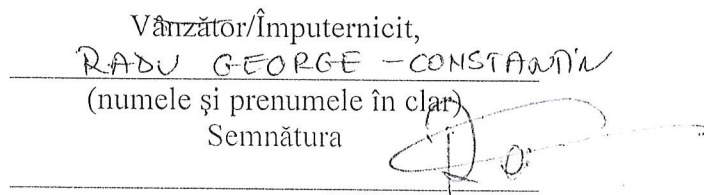 Vânzător/Împuternicit,
RADU GEORGE - CONSTANTIN
(numele şi prenumele în clar)
Semnătura